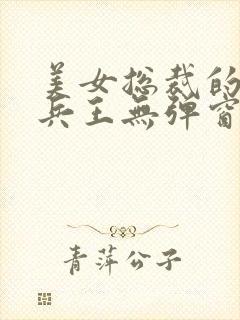 美女総裁的
兵王無彈窗
青萍公子